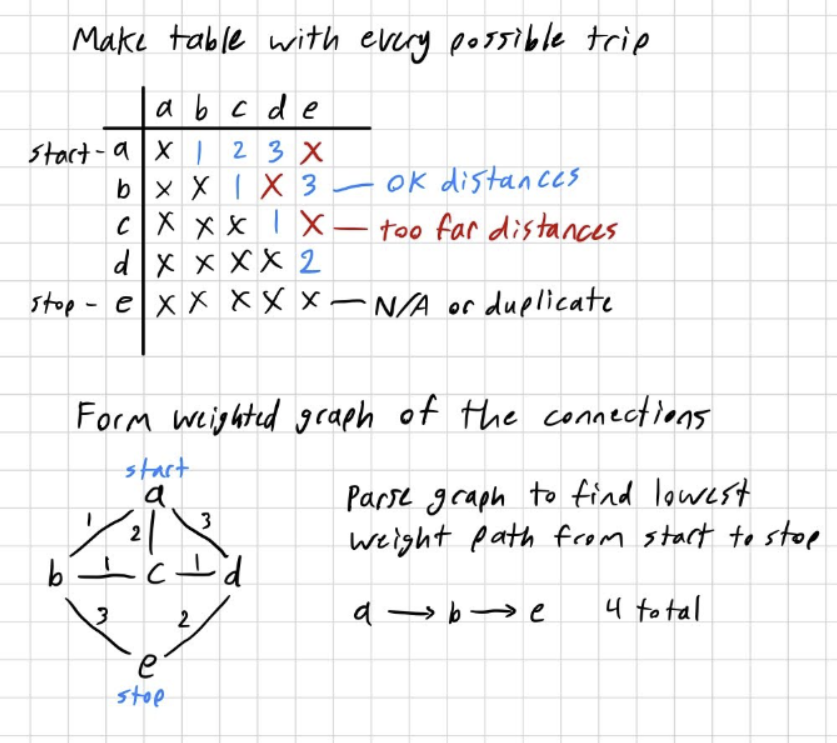 Make table with every possible trip
a b c d e
start - a X 1 2 3 X
b X X 1 X 3 — OK distances
c X X X 1 X — too far distances
d X X X X 2
stop - e X X X X X — N/A or duplicate
Form weighted graph of the connections
start
a
1 2 3
b 1 c 1 d
3 2
e
stop
Parse graph to find lowest
weight path from start to stop
a → b → e 4 total